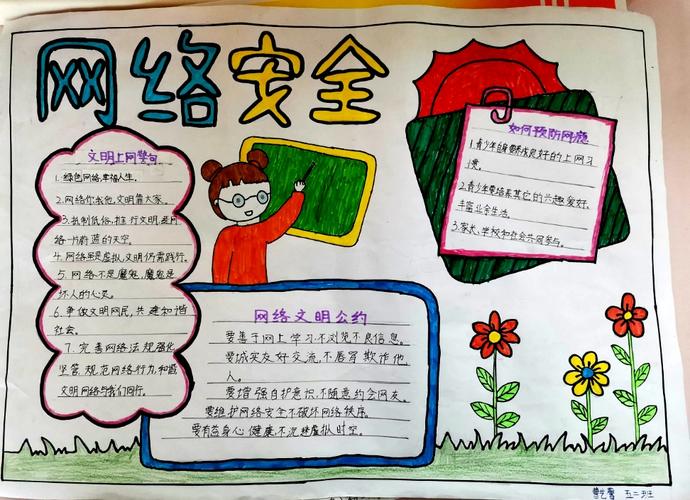 网络安全
文明上网警句
1. 绿色网络,幸福人生。
2. 网络你我他,文明靠大家。
3. 抵制低俗,推行文明,是网
络一片蔚蓝的天空。
4. 网络虽是虚拟,文明仍需践行。
5. 网络不是魔鬼,魔鬼是
坏人的心灵。
6. 争做文明网民,共建和谐
社会。
7. 完善网络法规强化
监管,规范网络行为
文明网络与我们同行。
如何预防网瘾
1.青少年自身要养成良好的上网习
惯。
2.青少年要培养其它的兴趣爱好,
丰富业余生活。
3.家长,学校和社会共同参与。
网络文明公约
要善于网上学习,不浏览不良信息。
要诚实友好交流,不辱骂欺诈他
人。
要增强自护意识,不随意约会网友。
要维护网络安全不破坏网络秩序。
要有益身心健康,不沉迷虚拟时空。
五二班